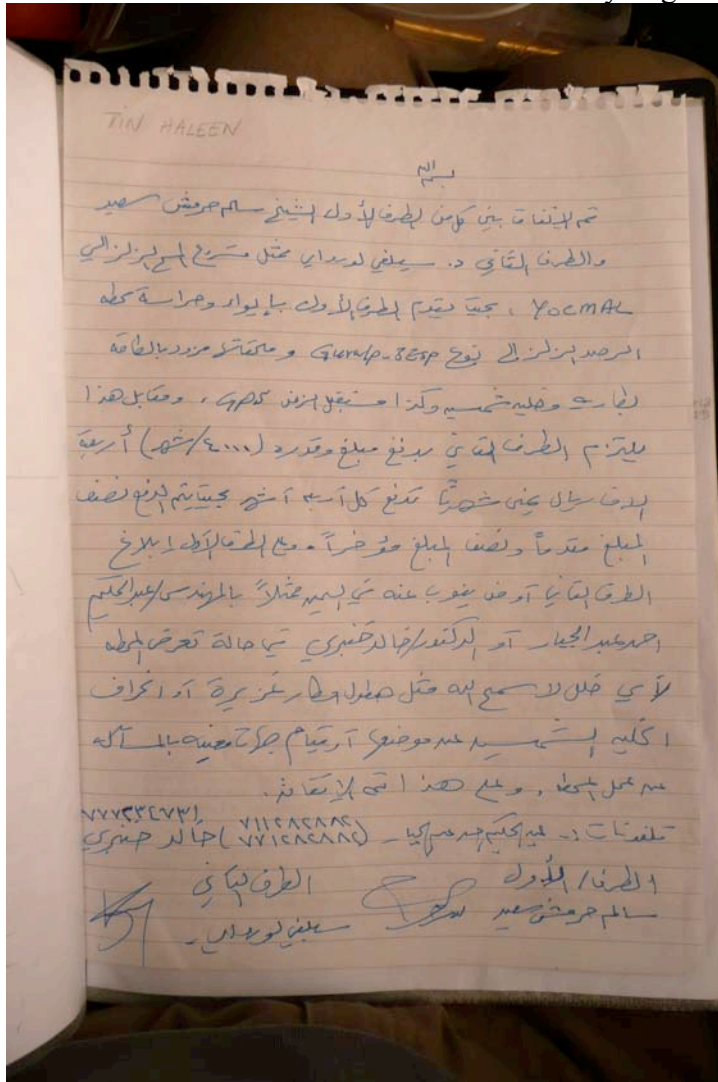 TIN HALEEN
بسم الله
تم الإتفاق بين كل من الطرف الأول الشيخ سالم حرمش سعيد
والطرف الثاني د. سيلفي لورداي ممثل مشروع المسح الزلزالي
YOCMAL ، بحيث يقوم الطرف الأول بإيواء وحراسة محطه
الرصد الزلزالي نوع وملحقاتها مزود بالطاقه
بطاريه وخليه شمسيه وكذا مستقبل الزمن GPS ، ومقابل هذا
يلتزم الطرف الثاني بدفع مبلغ وقدره (٤٠٠٠/شهر) أربعة
الاف ريال يمني شهرياً تدفع كل أربعه أشهر بحيث يتم الدفع نصف
المبلغ مقدماً ونصف المبلغ مؤخراً . وعلى الطرف الأول إبلاغ
الطرف الثاني أو من ينوب عنه في اليمن ممثلاً بالمهندس/عبدالحكيم
احمد عبدالجبار أو الدكتور/خالد خنبري في حالة تعرض المحطه
لأي خلل لا سمح الله مثل هطول امطار غزيرة أو انحراف
الخليه الشمسيه عن موضعها أو قيام جهات معنيه بالمسآله
عن عمل المحطه . وعلى هذا تم الإتفاق .
٧٧٧٢٣٤٧٣١ ٧١١٢٨٢٨٨٢
تلفونات :- عبدالحكيم احمد عبدالجبار - (٧٧١٢٨٢٨٨٢) خالد خنبري
الطرف الأول الطرف الثاني
سالم حرمش سعيد سيلفي لورداي